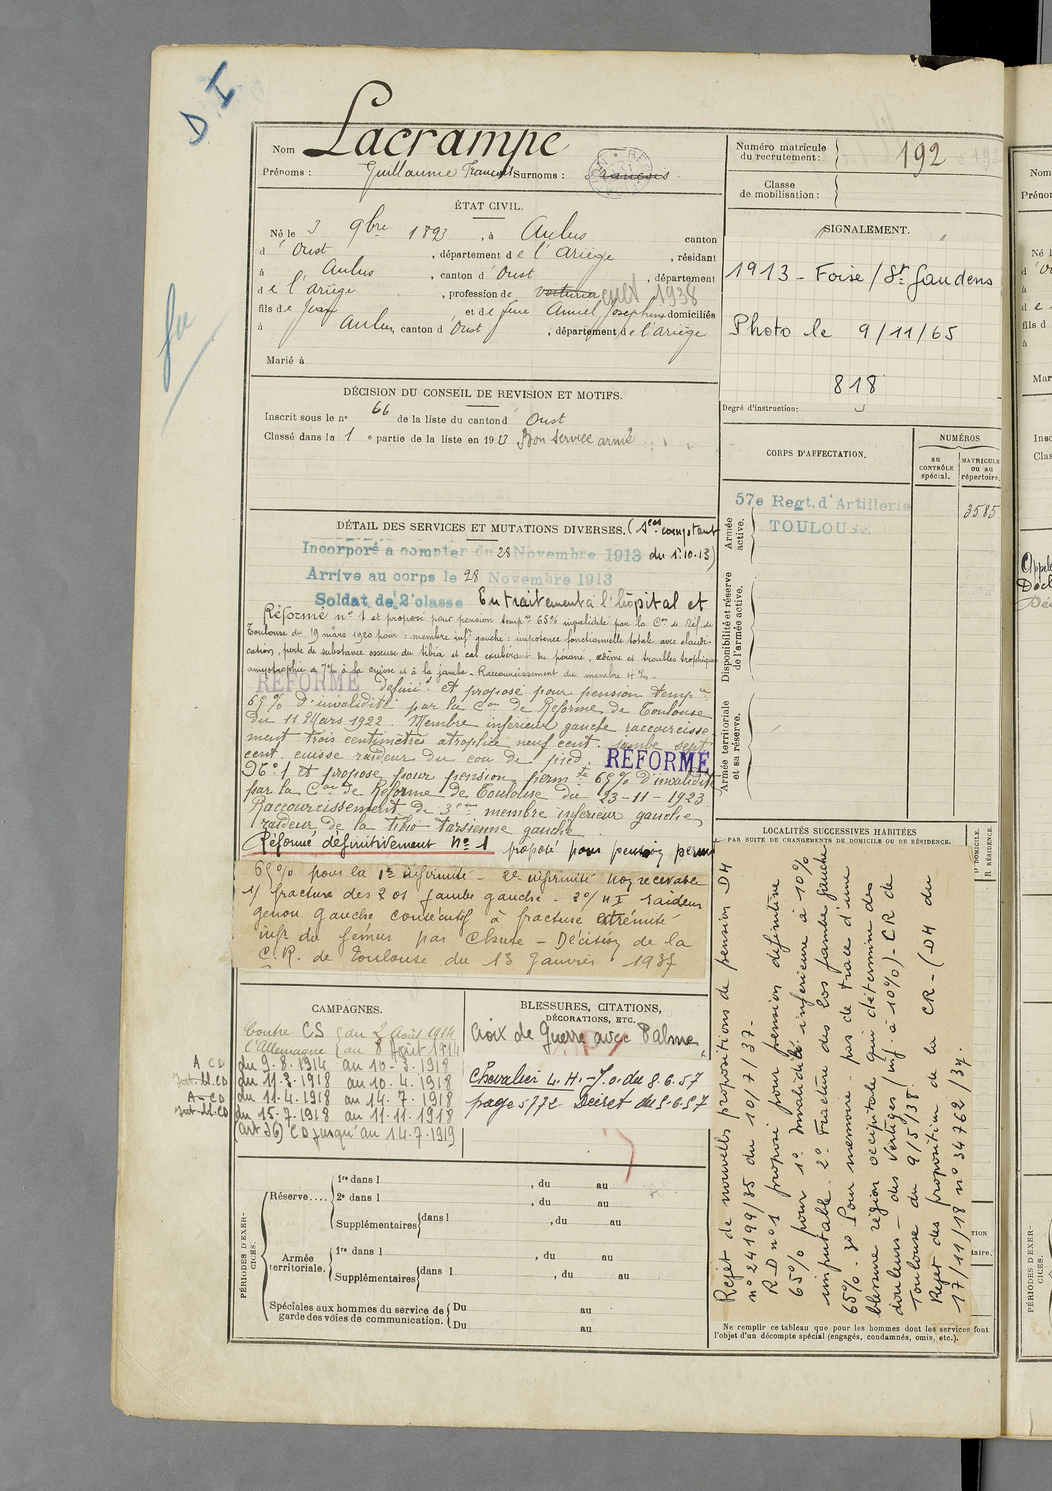 D I
fu
Nom Lacrampe
Prénoms : Guillaume François Surnoms : François
ÉTAT CIVIL.
Né le 3 9bre 1893, à Aulus canton
d'Oust, département de l'Ariège, résidant
à Aulus, canton d'Oust, département
de l'Ariège, profession de voiturier cult 1938
fils de Jean et de feue Amiel Joséphine domiciliés
à Aulus, canton d'Oust, département de l'Ariège
Marié à
DÉCISION DU CONSEIL DE REVISION ET MOTIFS.
Inscrit sous le n° 66 de la liste du canton d'Oust
Classé dans la 1e partie de la liste en 1913 Bon service armé
DÉTAIL DES SERVICES ET MUTATIONS DIVERSES. (Sces comptant
Incorporé à compter du 28 Novembre 1913 du 1.10.13)
Arrive au corps le 28 Novembre 1913
Soldat de 2e classe En traitement à l'hôpital et
Réformé n° 1 et proposé pour pension tempre 65% invalidité par la Con de Réf. de
Toulouse du 19 mars 1920 pour : membre infr gauche : impotence fonctionnelle totale avec claudi-
cation, perte de substance osseuse du tibia et cal exubérant du péroné, œdème et troubles trophiques
amyotrophie de 7cm à la cuisse et à la jambe. Raccourcissement du membre 4cm.
RÉFORMÉ définit. et proposé pour pension tempre
65% d'invalidité par la Con de Réforme de Toulouse
du 11 Mars 1922. Membre inférieur gauche raccourcisse
ment trois centimètres atrophie neuf cent. jambe sept
cent. cuisse raideur du cou de pied. RÉFORMÉ
N° 1 et proposé pour pension permte 65% d'invalidité
par la Con de Réforme de Toulouse du 23-11-1923.
Raccourcissement de 3cm membre inférieur gauche,
raideur de la tibio tarsienne gauche
Réformé définitivement N° 1 proposé pour pension perm
65% pour la 1re infirmité - 2e infirmité non recevable
1/ fracture des 2 os jambe gauche - 2°/ H I raideur
genou gauche consécutif à fracture extrémité
infr du fémur par chute - Décision de la
C.R. de Toulouse du 13 Janvier 1937
CAMPAGNES.
Contre CS du 2 Août 1914
l'Allemagne au 8 Août 1914
A CD du 9-8-1914 au 10-3-1918
Int. bl. CD du 11-3-1918 au 10-4-1918
A-CD du 11-4-1918 au 14-7-1918
Int. bl. CD du 15-7-1918 au 11-11-1918
(art 36) CD jusqu'au 14-7-1919
BLESSURES, CITATIONS,
DÉCORATIONS, ETC.
Croix de Guerre avec Palme,
Chevalier L.H. - J.O. du 8.6.57
page 5772 Décret du 5.6.57
PÉRIODES D'EXER-
CICES.
Réserve.... 1re dans l , du au
2e dans l , du au
Supplémentaires dans l , du au
Armée
territoriale. 1re dans l , du au
Supplémentaires dans l , du au
Spéciales aux hommes du service de
garde des voies de communication. Du au
Du au
Numéro matricule
du recrutement : 192
Classe
de mobilisation :
SIGNALEMENT.
1913 - Foise / St Gaudens
Photo le 9/11/65
818
Degré d'instruction :
CORPS D'AFFECTATION.
NUMÉROS
au
CONTRÔLE
spécial.
MATRICULE
ou au
répertoire.
Armée
active.
57e Regt. d'Artillerie
TOULOUSE
3585
Disponibilité et réserve
de l'armée active.
Armée territoriale
et sa réserve.
LOCALITÉS SUCCESSIVES HABITÉES
PAR SUITE DE CHANGEMENTS DE DOMICILE OU DE RÉSIDENCE.
D DOMICILE.
R RÉSIDENCE.
Rejet de nouvelles propositions de pension D4
n° 24199/35 du 10/7/37-
R-D n° 1 proposé pour pension définitive
65% pour 1° Invalidité inférieure à 10%
imputable. 2° Fracture des 2 os jambe gauche
65%. 3° Pour mémoire - pas de trace d'une
blessure région occipitale qui détermine des
douleurs - des vertiges (inf. à 10%) - CR de
Toulouse du 9/5/38.
Rejet des proposition de la CR - (D4 du
17/11/18 n° 34762/37.
Ne remplir ce tableau que pour les hommes dont les services font
l'objet d'un décompte spécial (engagés, condamnés, omis, etc.).